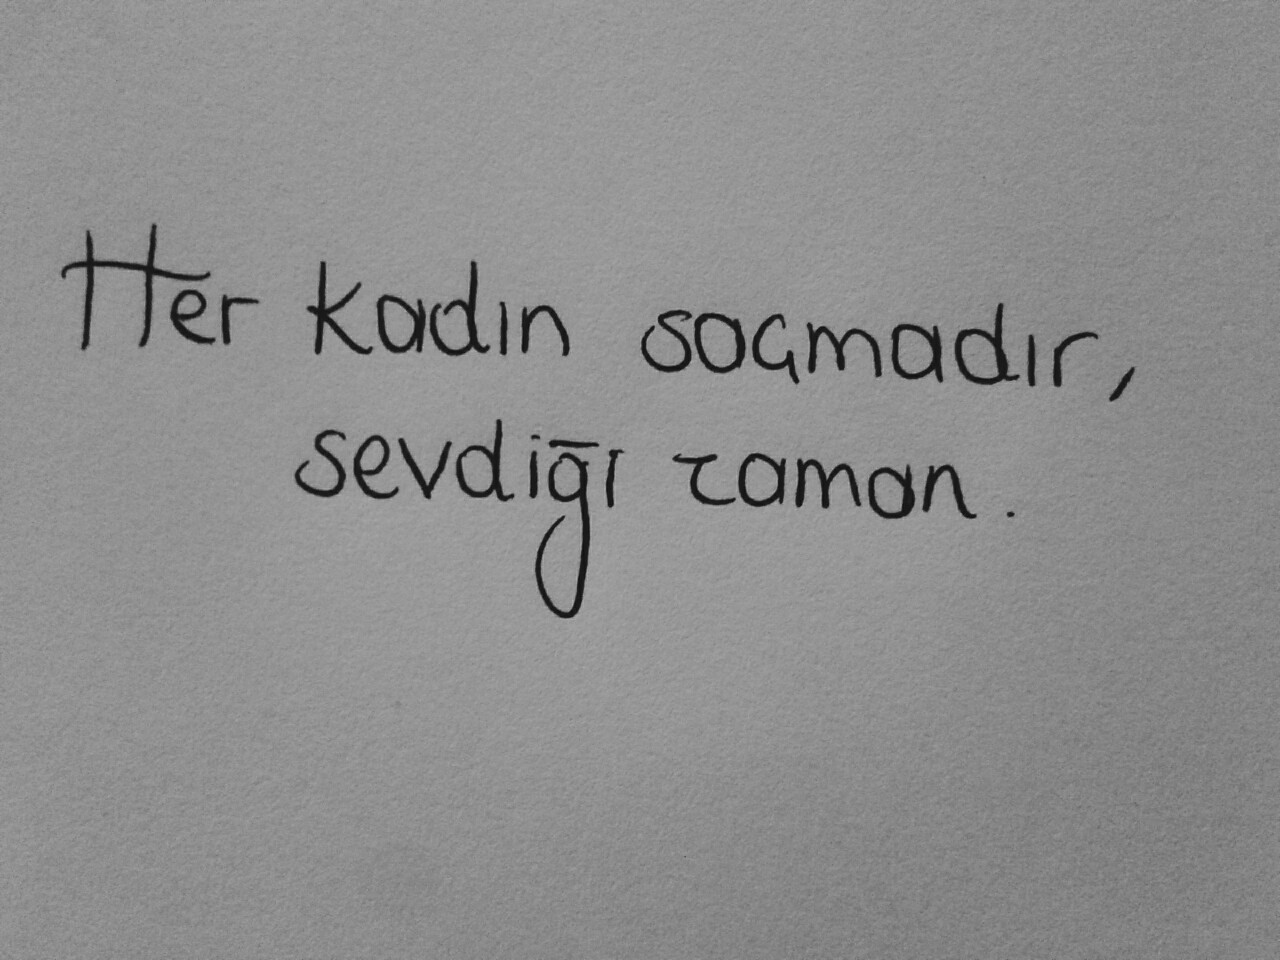 Her kadın saçmadır,
sevdiği zaman.